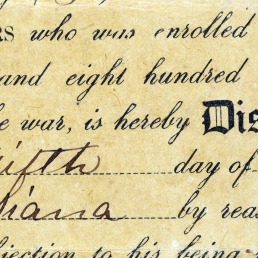 RS who was enrolled
and eight hundred
e war, is hereby Dis
ifth day of
iana by reas
jection to his being